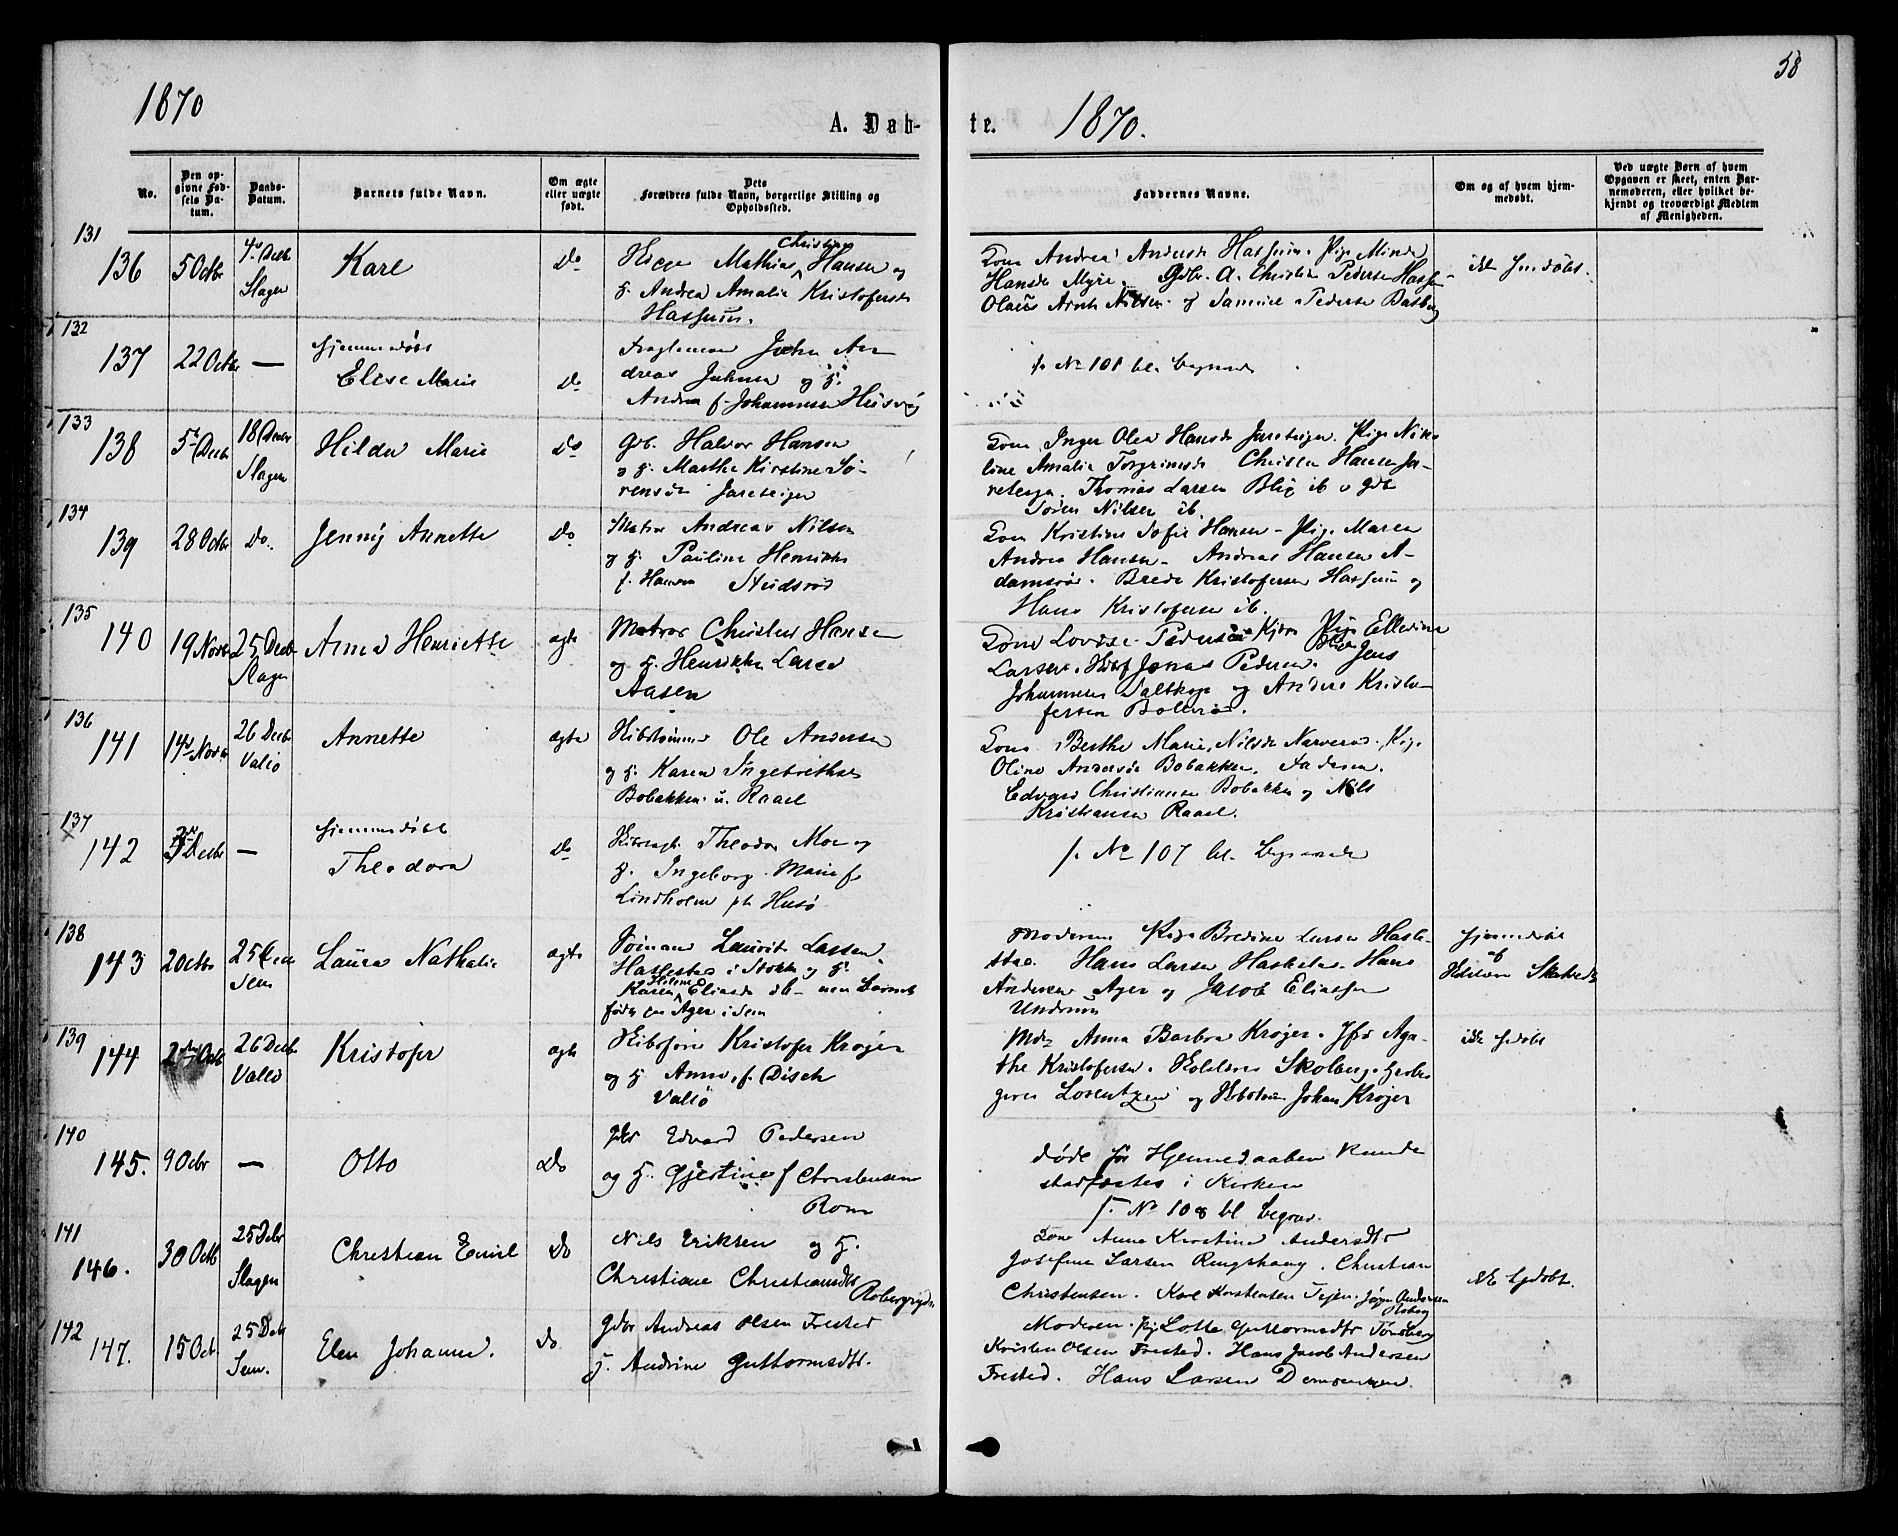 1870
A. Døb-
te.
1870.
58
No.
Den op-
givne Fød-
sels Da-
tum.
Daabs-
Datum.
Barnets fulde Navn.
Om ægte
eller uægte
født.
Dets
Forældres fulde Navn, borgerlige Stilling og
Opholdssted.
Faddernes Navne.
Om og af hvem hjem-
medøbt.
Ved uægte Børn af hvem
Opgaven er skeet, enten Bar-
nemoderen, eller hvilket be-
kjendt og troværdigt Medlem
af Menigheden.
131
136 5 Octbr 4de Decbr Karl Do Mathias Christian Hansen og
Slagen
H. Andrea Amalie Kristofersdt
Hassum.
Kone Andrea Andersdt Hassum. Pige Minda
Hansdt Myre. Gdbr. A. Christian Pedersen Hassum
Olaus Nilsen og Samuel Pedersen Basberg
132
137 22 Octbr — hjemmedøbt
Elise Marie Do
John An-
dreas Johnsen og H.
Andrea f. Johannessen Husvig
f. No 101 bl. begravede
133
138 5te Decbr 18 Decbr Hilda Marie Do Gdb. Halvor Hansen
Slagen
og H. Marthe Kirstine Sø-
rensdt Jareteigen
Kone Inger Olea Hansdt Jareteigen. Pige Niko-
line Amalie Torgrimsdt Christen Hansen Ja-
reteigen. Thomas Larsen ib o Gdb
Søren Nilsen ib.
134
139 28 Octbr Do. Jenny Annette Do Matros Andreas Nilsen
og H. Pauline Henrikke
f. Hansen
Kone Kristine Sofie Hansen - Pige Maren
Andrea Hansen - Andreas Hansen A-
damsrød. Brede Kristofersen Hassum og
Hans Kristofersen ib.
135
140 19 Novbr 25 Decbr Anna Henriette ægte Matros Christen Hansen
Slagen
og H. Henrikke Larsd
Aasen
Kone Lovise Pedersen Pige Elledine
Larsen. Jonas Pedersen. Jens
Johannesen Saltkop og Anders Kristo-
fersen
136
141 14de Novbr 26 Decbr Annette ægte Ole Andersen
Valø
og H. Karen Ingebrethsen
Bobakken u. Raael
Kone Berthe Marie Nilsdt Narverød. Pige
Oline Andersdt Bobakken. Faderen.
Edvard Christiansen Bobakken og Nils
Kristiansen Raael.
137
142 Decbr — hjemmedøbt
Theodora Do Theodor Moe og
H. Ingeborg Marie f.
Lindholm pt Husø
f. No 107 bl. Begravede
138
143 2 Octbr 25 Dec Laura Nathalie ægte Sømand Laurits Larsen
Sem
Haslestad i Stokke og H.
Karen Helene Eliasdt ib -
født paa Ager i Sem
Moderen Pige Bredine Larsen Hasle-
stad. Hans Larsen Haslestad. Hans
Andersen Ager og Jacob Eliassen
Undrum
hjemmedøbt
af
139
144 Octbr 26 Decbr Kristofer ægte Kristofer Krøjer
Vallø
og H. Anna f. Disch
Vallø
Mod. Anna Barbra Krøjer. Jfr Aga-
the Kristofersen. Skolberg.
Lorentzen og Johan Krøjer
ikke hjdøbt
140
145. 9 Ocbr — Otto Do Gdbr Edvard Pedersen
og H. Gjertine f Christensen
Rom
døde før Hjemmedaaben kunde
stadfæstes i Kirken
f. No 108 bl. begrav.
141
146. 30 Octb 25 Dcbr Christian Emil Do Nils Eriksen og H.
Slagen
Christiane Christiansdtr
Kone Anne Kirstine Andersdtr
Josefine Larsen Ringshaug. Christian
Christensen. Karl Karstensen Tejen. Jørgen Andersen
ikke hjdøbt.
142
147. 15 Oct 25 Dcbr Elen Johanne. Do Gdbr Andreas Olsen Frested
Sem.
H. Andrine Guttormsdtr.
Moderen. Pig Lotte Guttormsdtr Tønsberg
Kristen Olsen Frested. Hans Jacob Andersen
Frested. Hans Larsen